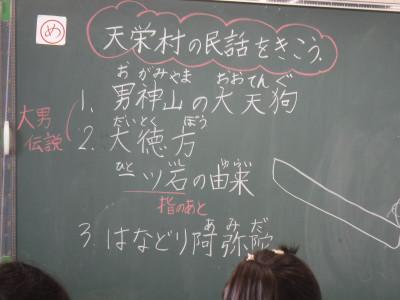 め
天栄村の民話をきこう.
おがみやま おおてんぐ
1. 男神山の大天狗
大男
伝説
だいとく ぼう
2. 大徳方
ひと いし ゆらい
一ツ岩の由来
指のあと
あ み だ
3. はなどり阿弥陀